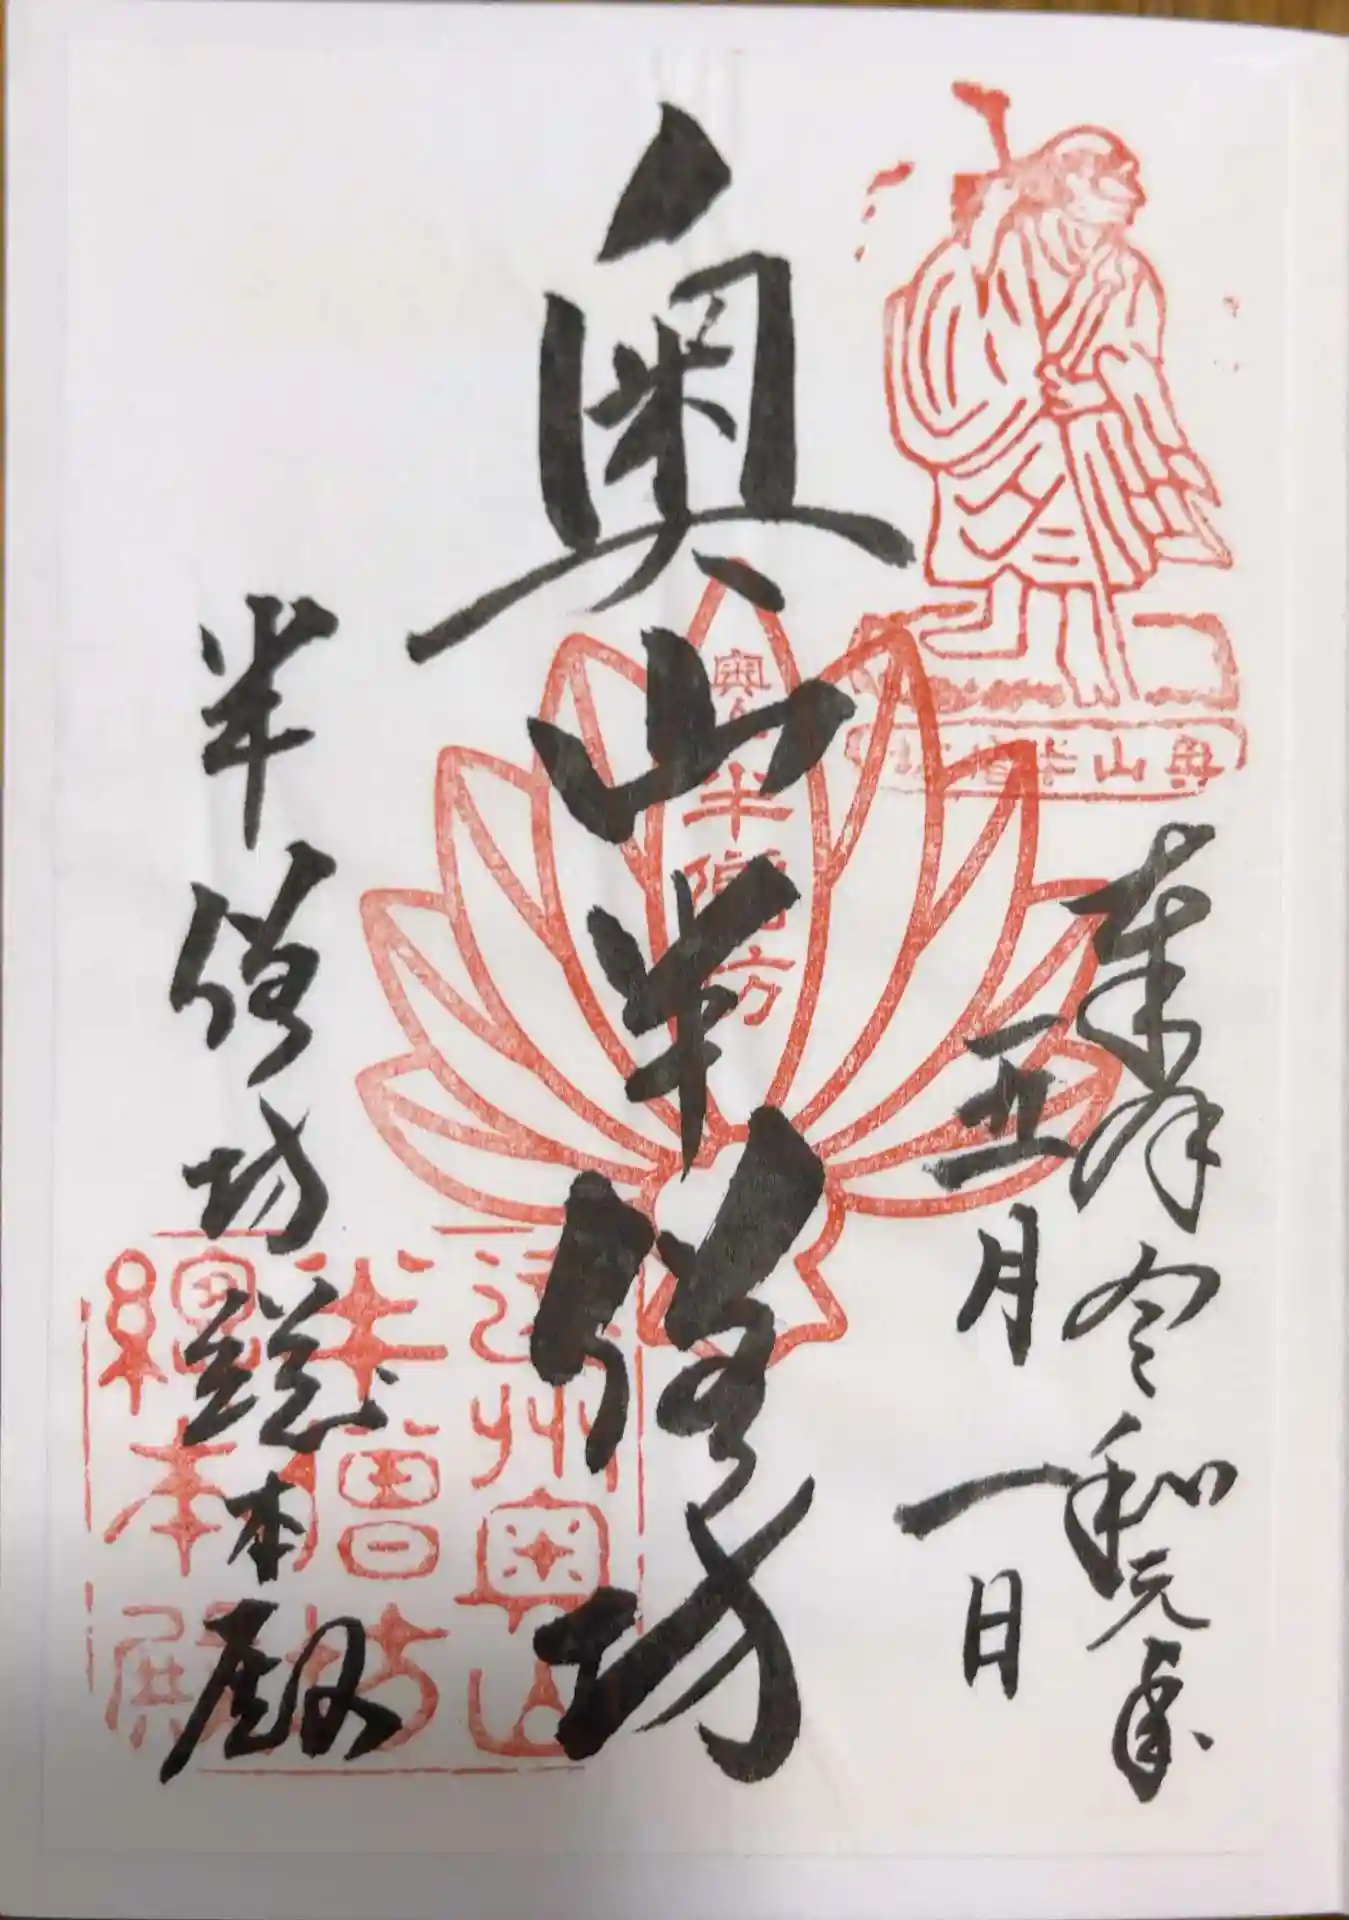 奉拝 令和元年
五月一日
奥山半僧坊
半僧坊総本殿
奥山半僧坊
奥山半僧坊
遠州奥山
半僧坊
總本殿